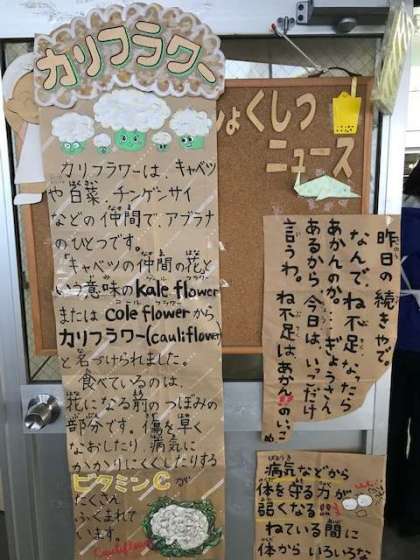 カリフラワー
カリフラワーは、キャベツ
や白菜 チンゲンサイ
などの仲間で、アブラナ
のひとつです。
「キャベツの仲間の花と
いう意味のkale flower
または cole flower から
カリフラワー(cauliflower)
と名づけられました。
食べているのは、
花になる前のつぼみの
部分です。傷を早く
なおしたり、病気に
かかりにくくしたりする
ビタミンCが
たくさん
ふくまれて
います。
Cauliflower
しょくしつ
ニュース
昨日の続きやで。
なんでね不足になったら
あかんのか。ぎょうさん
あるから今日は、いっこだけ
言うわ。ね不足はあかんのいっこめ
病気などから
体を守る力が
弱くなる
ねている間に
体からいろいろな